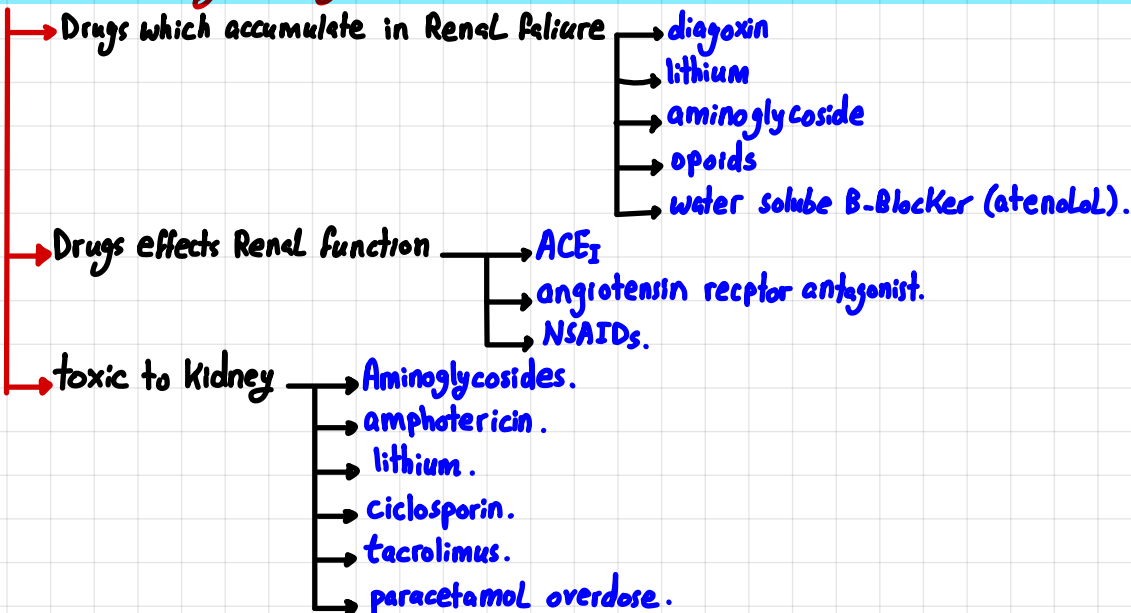 Drugs which accumulate in Renal faliure
diagoxin
lithium
aminoglycoside
opoids
water solube B-Blocker (atenolol).
Drugs effects Renal function
ACEI
angiotensin recptor antagonist.
NSAIDs.
toxic to Kidney
Aminoglycosides.
amphotericin.
lithium.
ciclosporin.
tacrolimus.
paracetamol overdose.